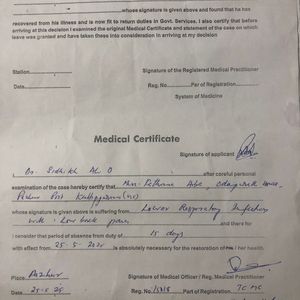 whose signature is given above and found that he has
recovered from his illness and is now fit to return duties in Govt. Services. I also certify that before
arriving at this decision I examined the original Medical Certificate and statement of the case on which
leave was granted and have taken these into consideration in arriving at my decision
Station
Signature of the Registered Medical Practitioner
Date
Reg. No. Part of Registration
System of Medicine
Medical Certificate
Signature of applicant
I Dr. Sidhikh Ali O after careful personal
examination of the case hereby certify that
Post
whose signature is given above is suffering from Lower Respiratory Infection
with Low back pain and there for
I consider that period of absence from duty of 15 days
with effect from 25-5- is absolutely necessary for the restoration of his / her health.
Place
Signature of Medical Officer / Reg. Medical Practitioner
Date 25-5- Reg. No. Part. of Registration TCMC